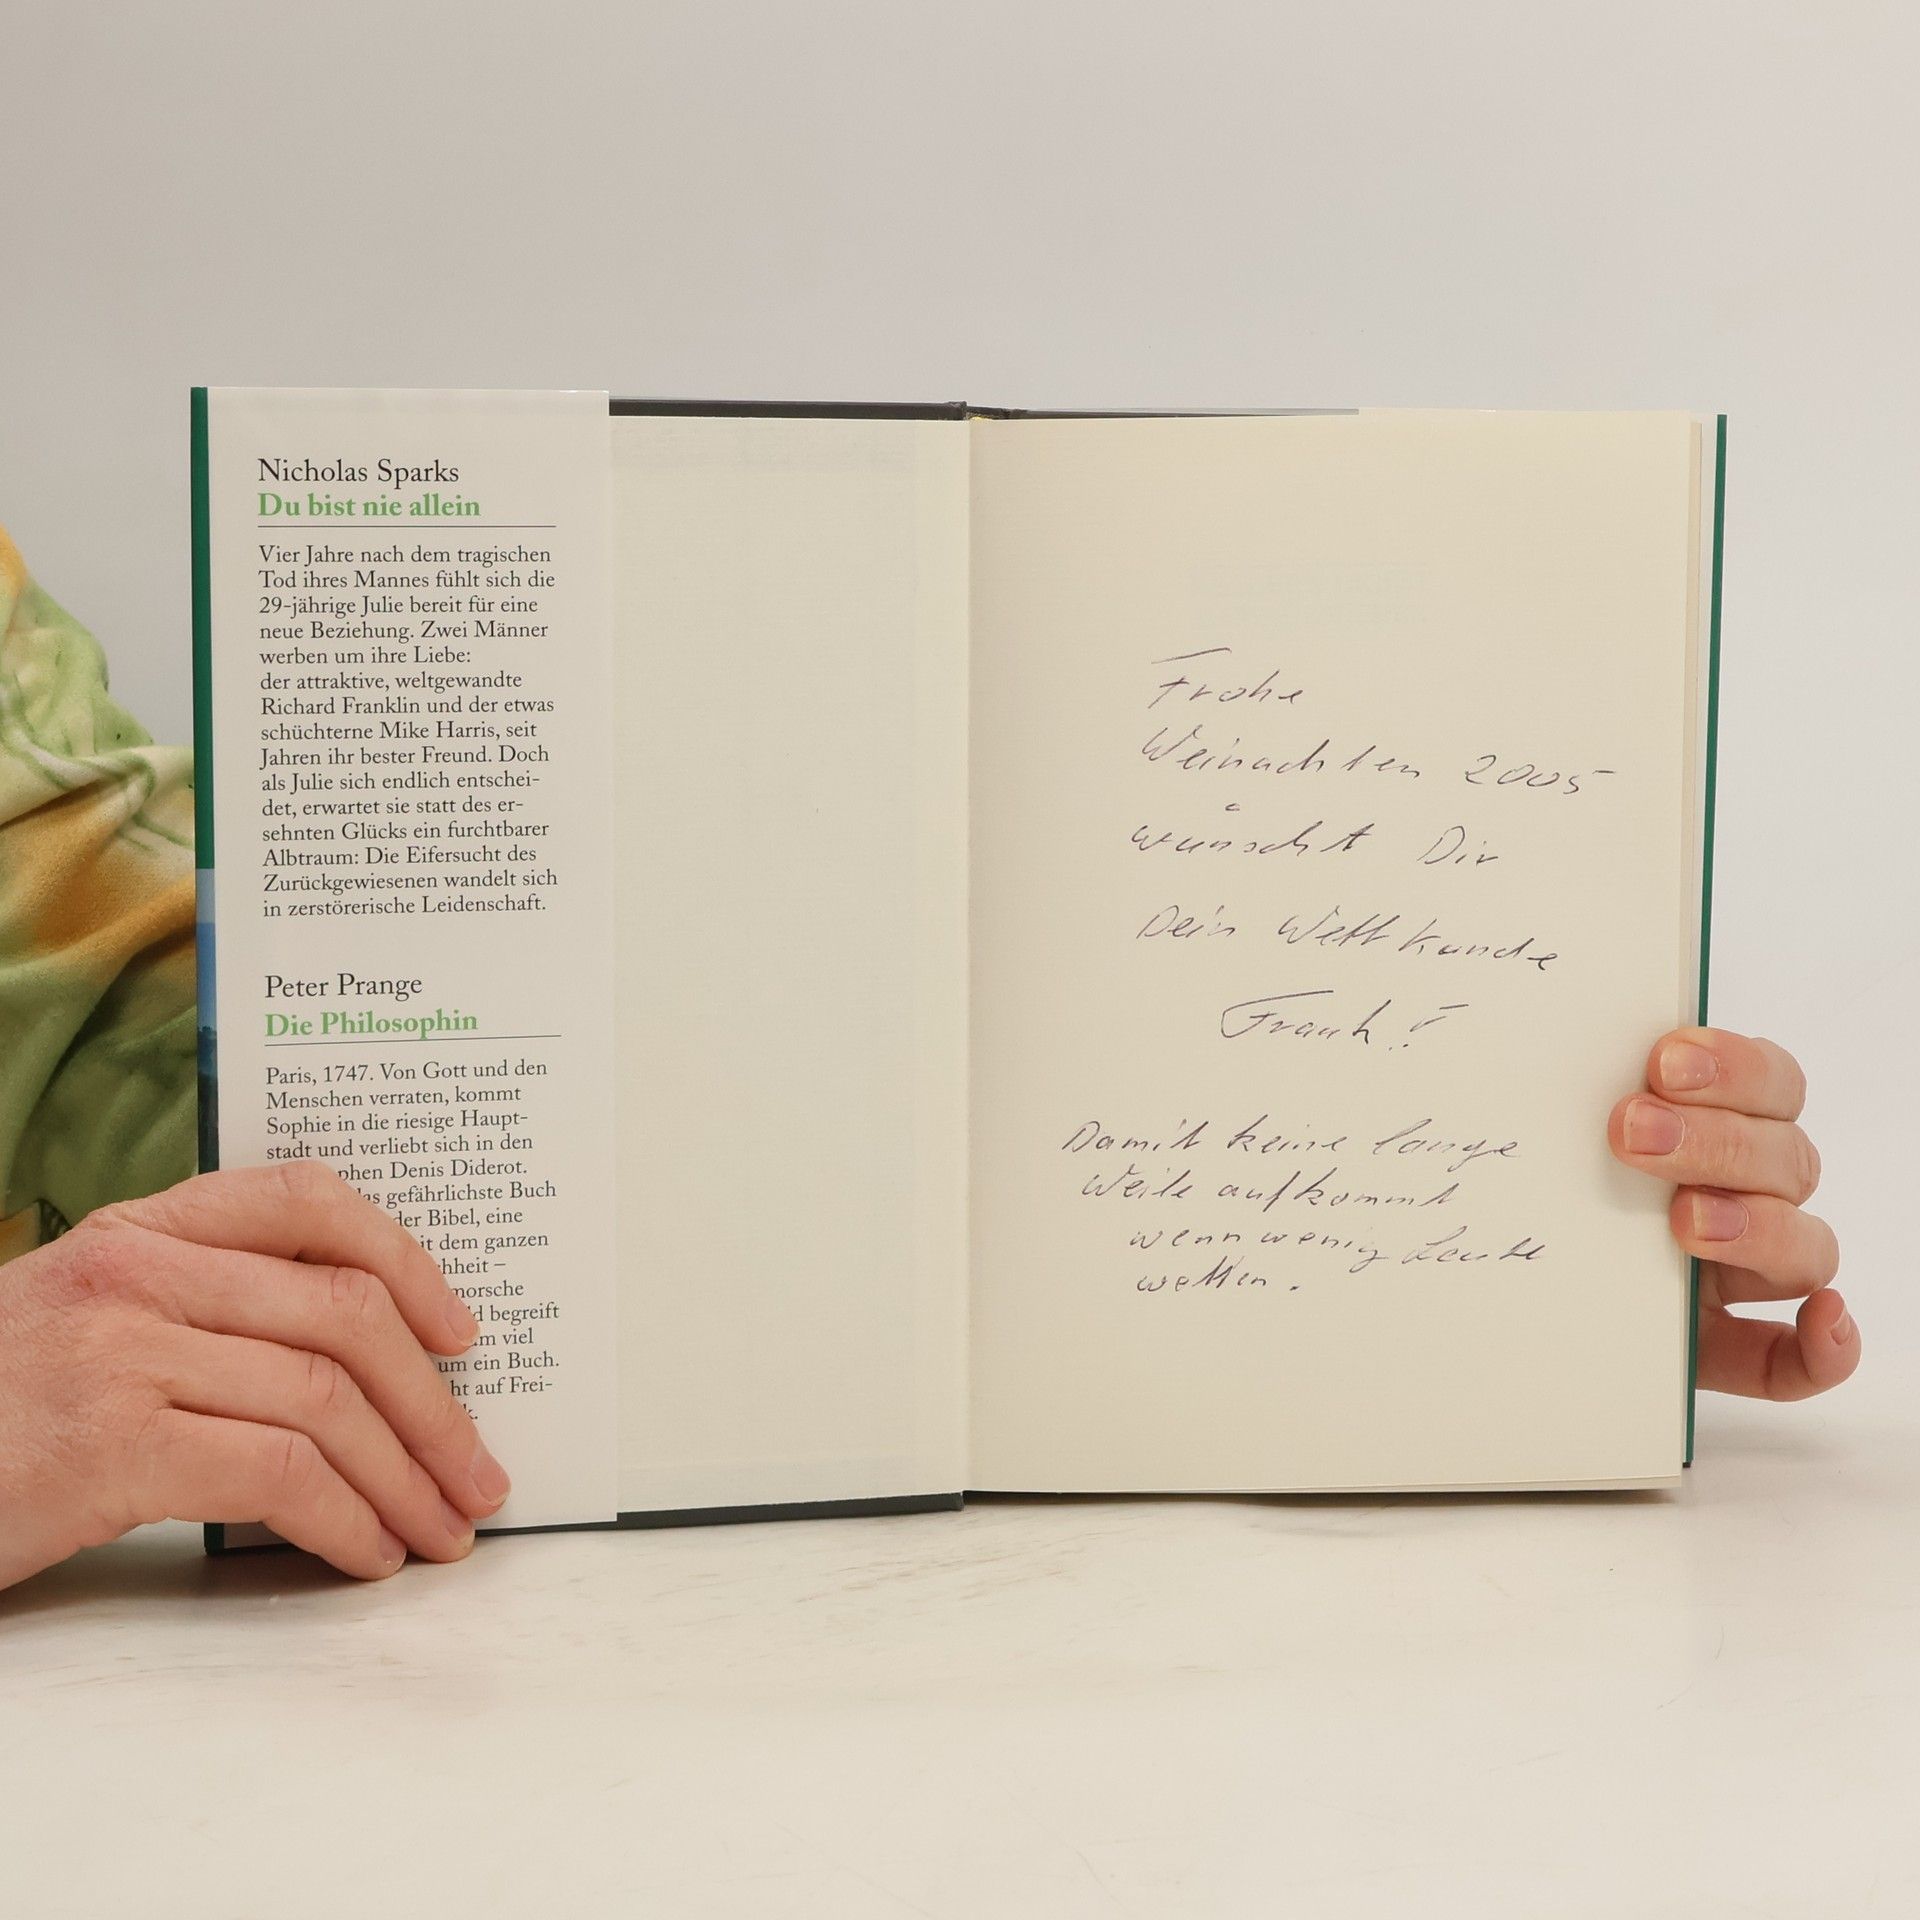 Nicholas Sparks
Du bist nie allein
Vier Jahre nach dem tragischen
Tod ihres Mannes fühlt sich die
29-jährige Julie bereit für eine
neue Beziehung. Zwei Männer
werben um ihre Liebe:
der attraktive, weltgewandte
Richard Franklin und der etwas
schüchterne Mike Harris, seit
Jahren ihr bester Freund. Doch
als Julie sich endlich entschei-
det, erwartet sie statt des er-
sehnten Glücks ein furchtbarer
Albtraum: Die Eifersucht des
Zurückgewiesenen wandelt sich
in zerstörerische Leidenschaft.
Peter Prange
Die Philosophin
Paris, 1747. Von Gott und den
Menschen verraten, kommt
Sophie in die riesige Haupt-
stadt und verliebt sich in den
phen Denis Diderot.
gefährlichste Buch
der Bibel, eine
it dem ganzen
hheit –
morsche
begreift
m viel
um ein Buch.
ht auf Frei-
k.
Frohe
Weinachten 2005
wünscht Dir
Dein Wettkunde
Frank!!
Damit keine lange
Weile aufkommt
wenn wenig Leute
wetten.